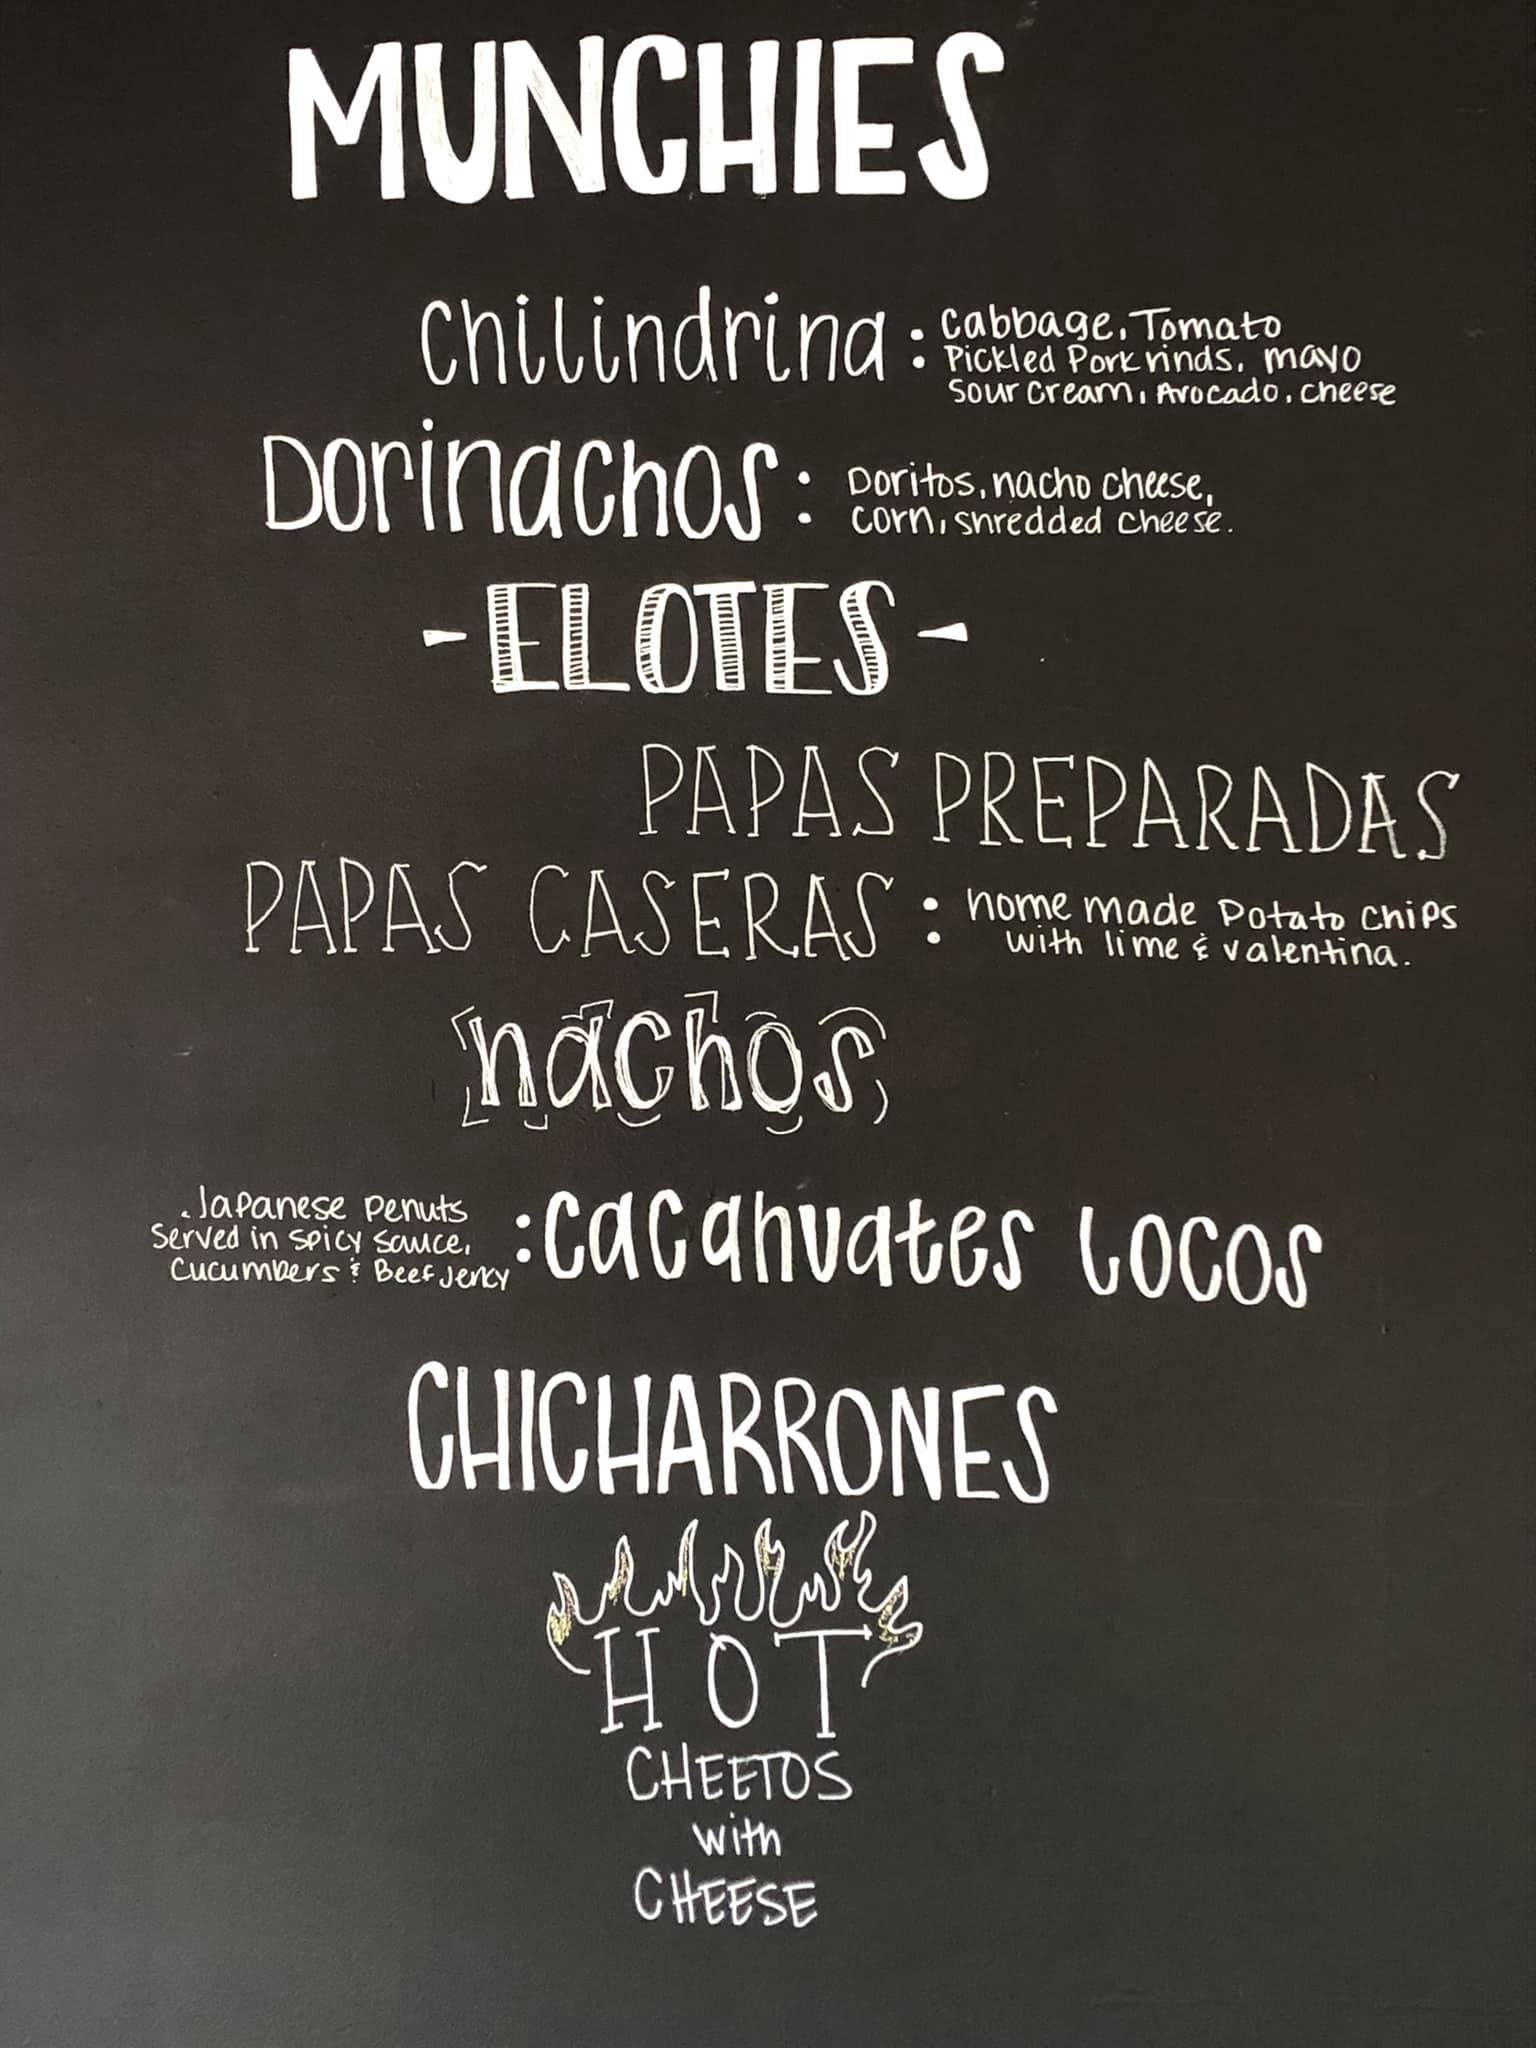 MUNCHIES
Chilindrina : Cabbage, Tomato
Pickled Pork rinds, mayo
Sour Cream, Avocado, cheese
Dorinachos : Doritos, nacho cheese,
Corn, shredded cheese.
- ELOTES -
PAPAS PREPARADAS
PAPAS CASERAS : home made Potato Chips
with lime & valentina.
nachos
Japanese Penuts
Served in spicy sauce,
Cucumbers & Beef Jerky
: Cacahuates Locos
CHICHARRONES
HOT
CHEETOS
with
CHEESE